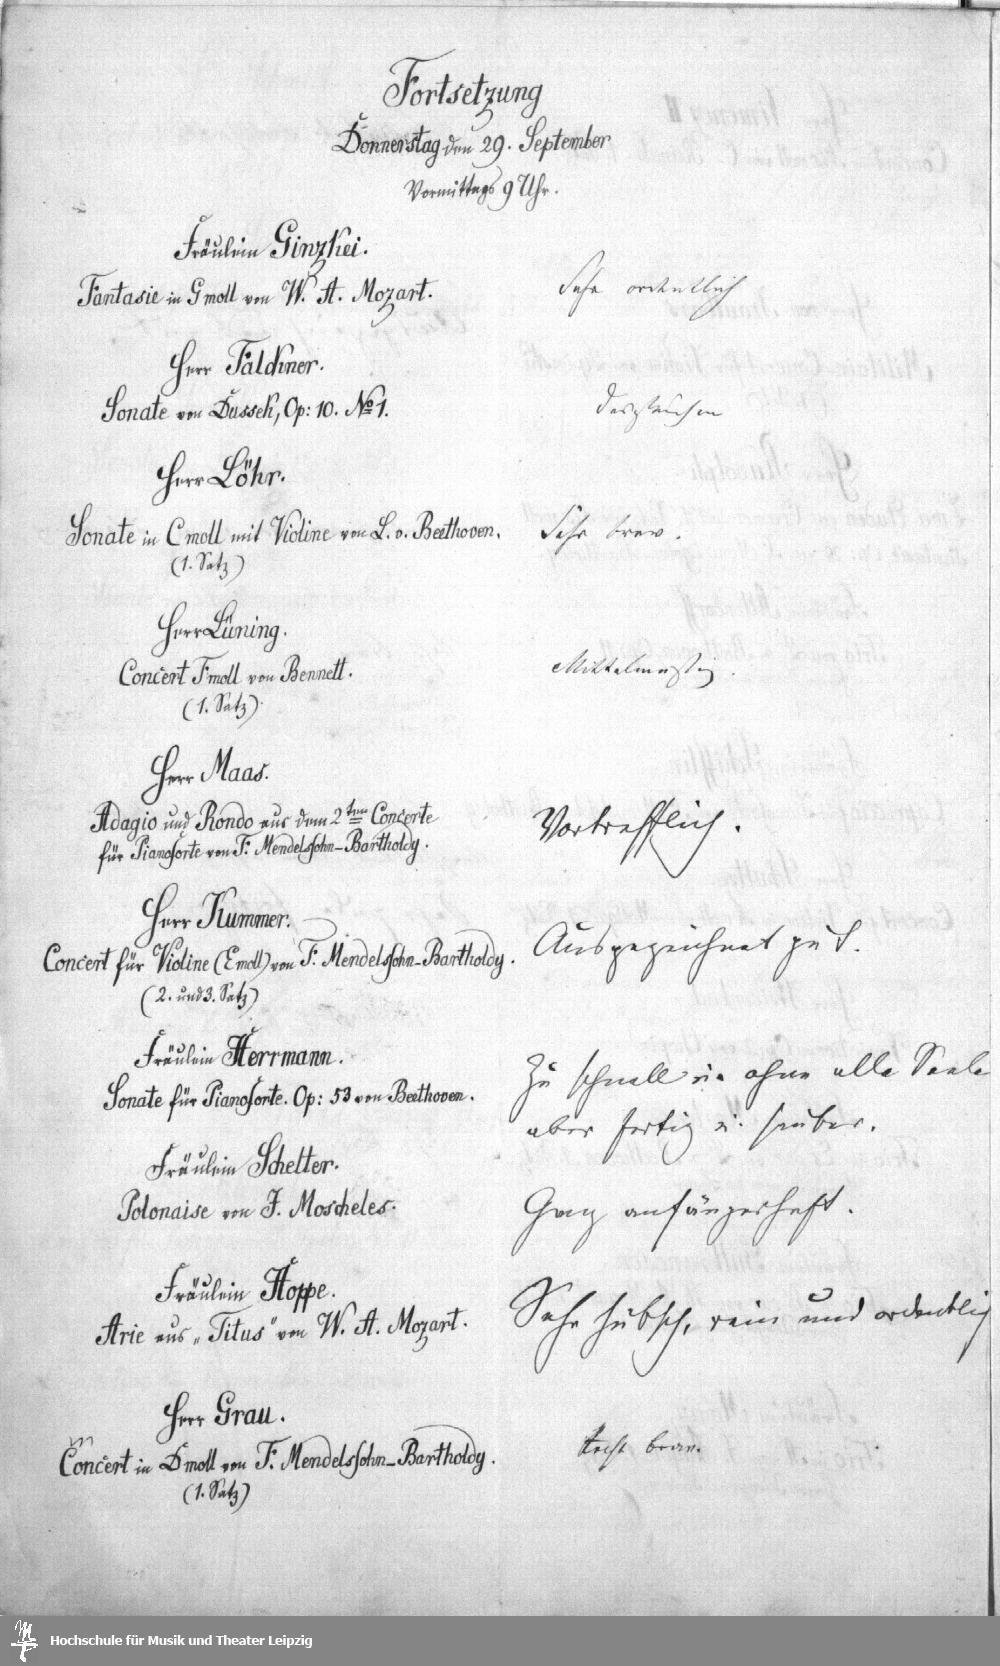 Fortsetzung
Donnerstag den 29. September
Vormittags 9 Uhr.
Fräulein Ginzkei.
Fantasie in G moll von W. A. Mozart.
Sehr ordentlich
Herr Faldkner.
Sonate von Dussek, Op: 10. No 1.
desgleichen
Herr Löhr.
Sonate in C moll mit Violine von L. v. Beethoven.
Sehr brav.
(1. Satz)
Herr Lüning.
Concert F moll von Bennett.
Mittelmässig.
(1. Satz)
Herr Maas.
Adagio und Rondo aus dem 2ten Concerte
für Pianoforte von F. Mendelssohn-Bartholdy.
Vortrefflich.
Herr Kummer.
Concert für Violine (E moll) von F. Mendelssohn-Bartholdy.
Ausgezeichnet gut.
(2. und 3. Satz)
Fräulein Herrmann.
Sonate für Pianoforte. Op: 53 von Beethoven.
Zu schnell u. ohne alle Seele
aber fertig u. sauber.
Fräulein Schelter.
Polonaise von J. Moscheles.
Ganz anfängerhaft.
Fräulein Hoppe.
Arie aus „Titus" von W. A. Mozart.
Sehr hübsch, rein und ordentlich
Herr Grau.
Concert in D moll von F. Mendelssohn-Bartholdy.
Recht brav.
(1. Satz)
Hochschule für Musik und Theater Leipzig